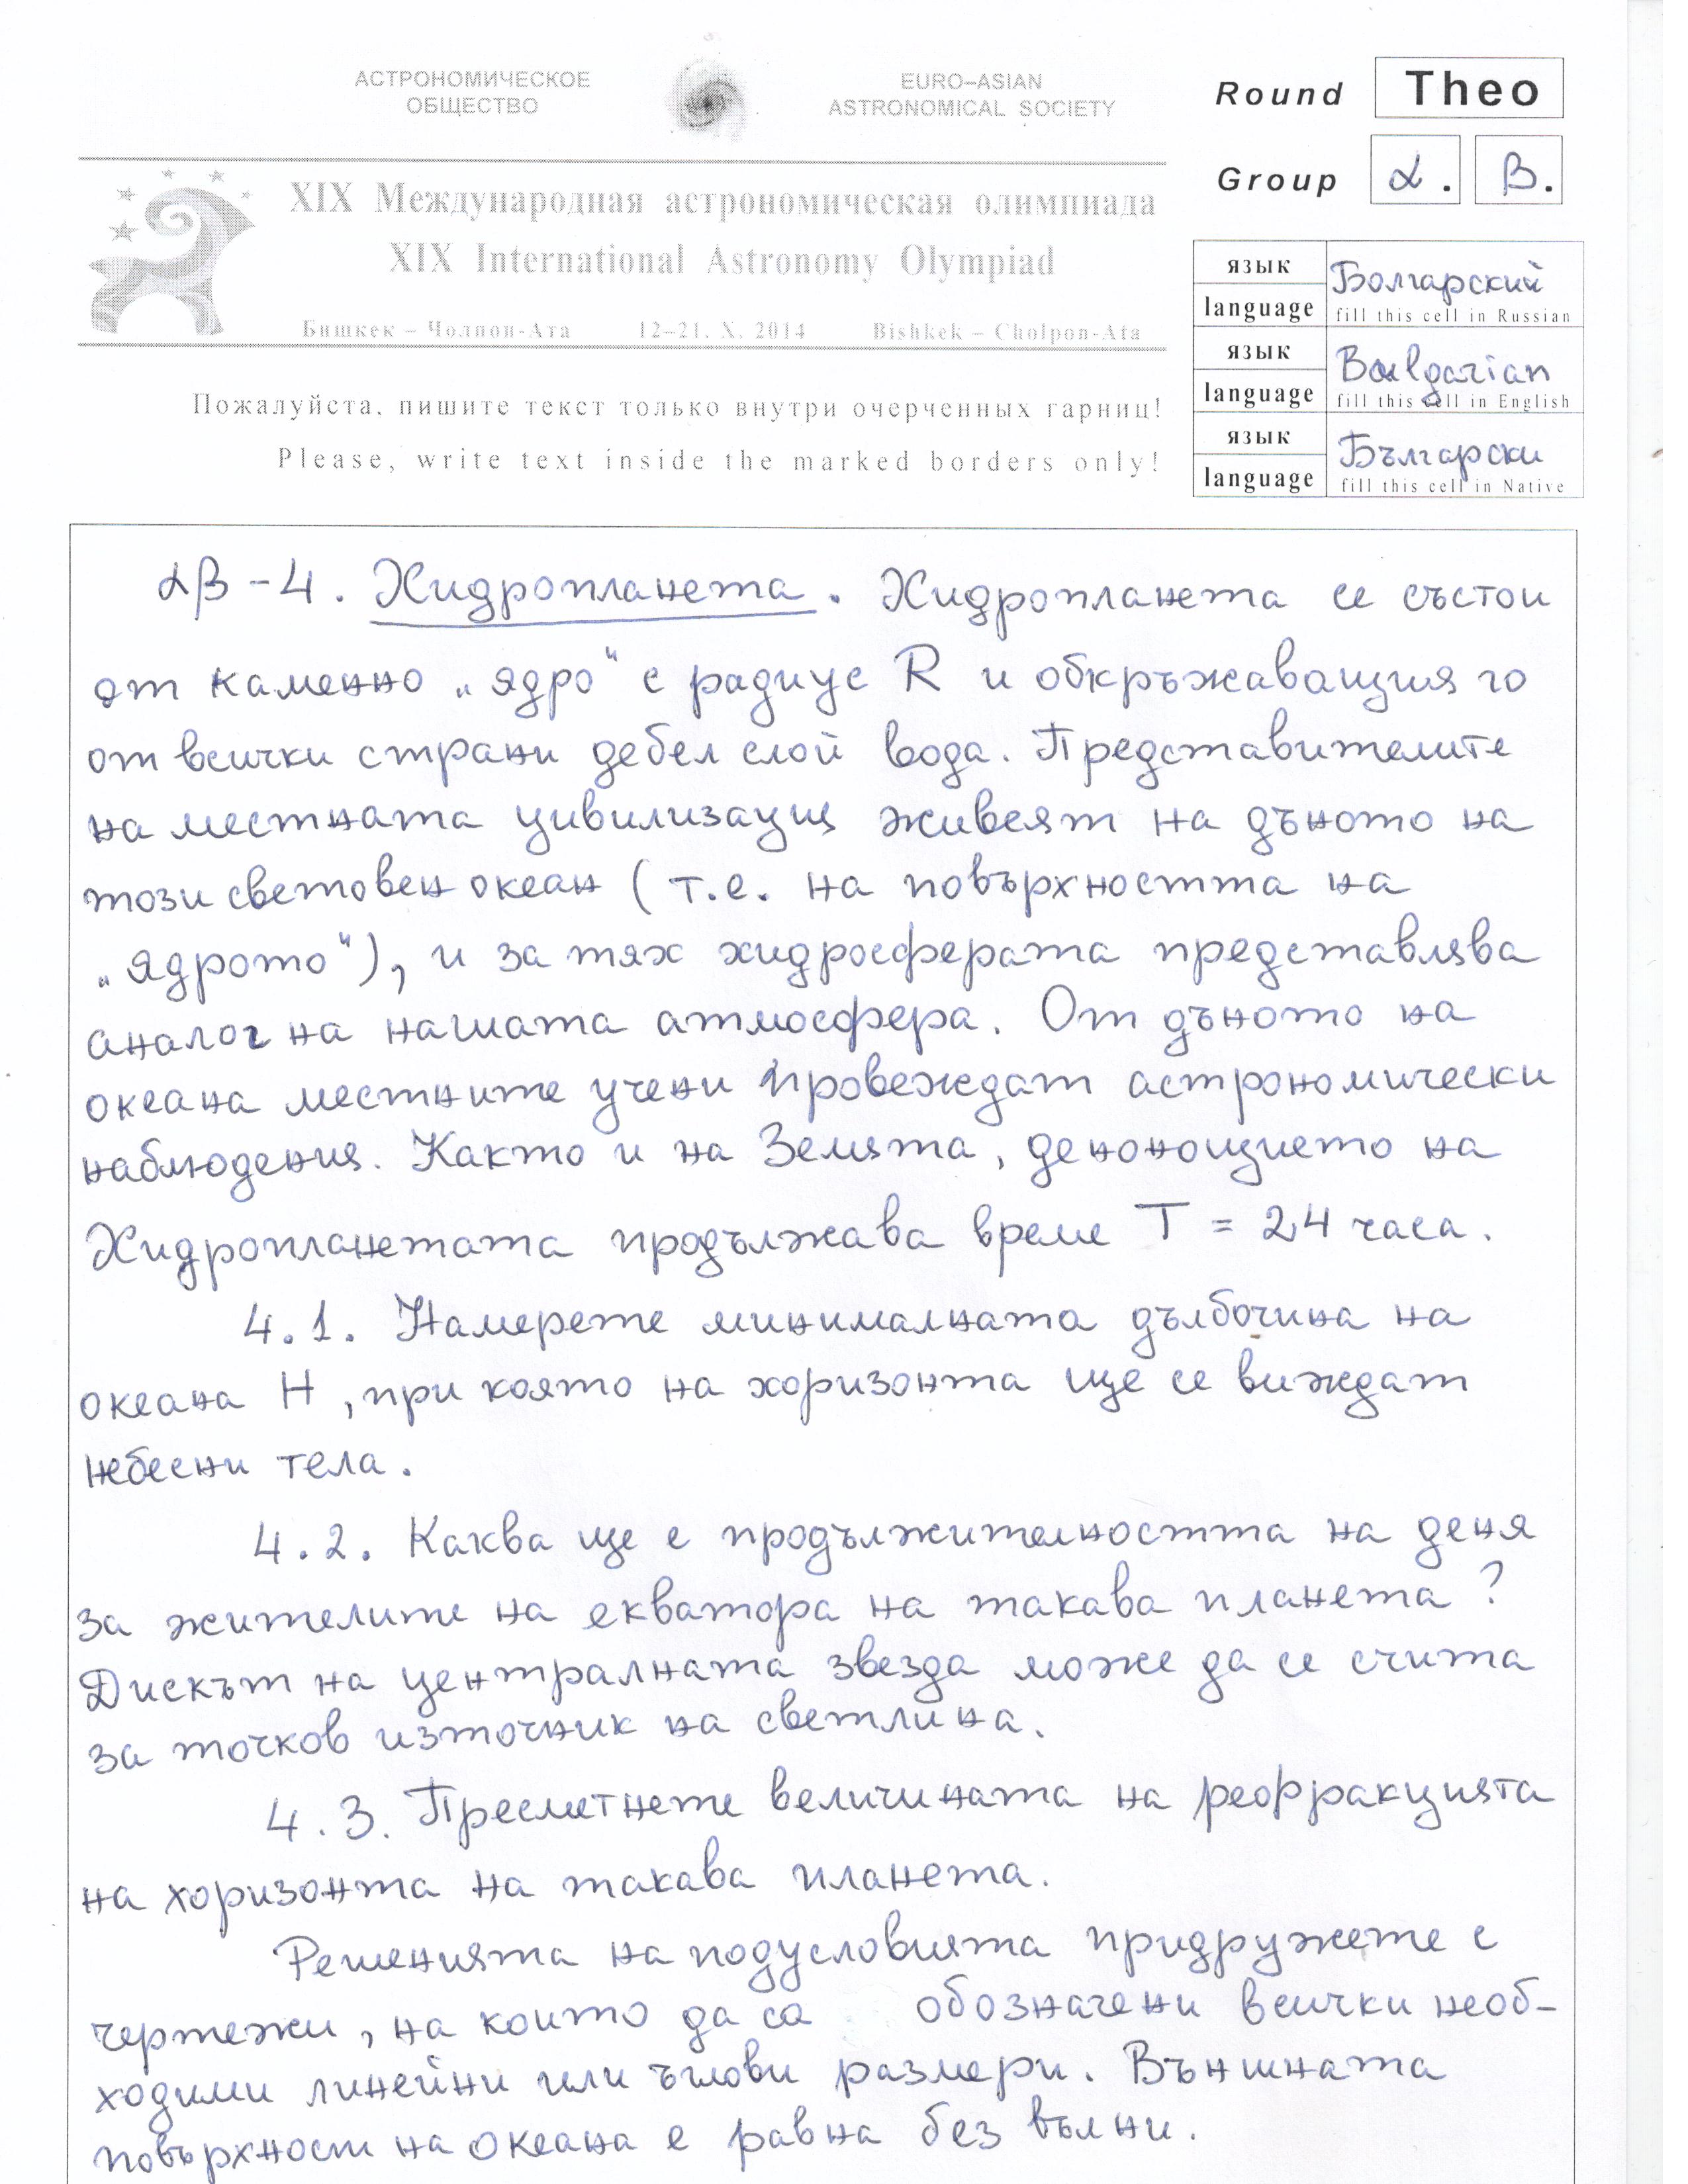 АСТРОНОМИЧЕСКОЕ
ОБЩЕСТВО
EURO–ASIAN
ASTRONOMICAL SOCIETY
Round Theo
Group α. β.
XIX Международная астрономическая олимпиада
XIX International Astronomy Olympiad
Бишкек – Чолпон-Ата 12–21. X. 2014 Bishkek – Cholpon-Ata
язык Болгарский
language fill this cell in Russian
язык Bulgarian
language fill this cell in English
язык Български
language fill this cell in Native
Пожалуйста, пишите текст только внутри очерченных гарниц!
Please, write text inside the marked borders only!
αβ-4. Хидропланета. Хидропланета се състои
от каменно „ядро" с радиус R и обкръжаващия го
от всички страни дебел слой вода. Представителите
на местната цивилизация живеят на дъното на
този световен океан (т.е. на повърхността на
„ядрото"), и за тях хидросферата представлява
аналог на нашата атмосфера. От дъното на
океана местните учени провеждат астрономически
наблюдения. Както и на Земята, денонощието на
Хидропланетата продължава време T = 24 часа.
4.1. Намерете минималната дълбочина на
океана H, при която на хоризонта ще се виждат
небесни тела.
4.2. Каква ще е продължителността на деня
за жителите на екватора на такава планета?
Дискът на централната звезда може да се счита
за точков източник на светлина.
4.3. Пресметнете величината на рефракцията
на хоризонта на такава планета.
Решенията на подусловията придружете с
чертежи, на които да са обозначени всички необ-
ходими линейни или ъглови размери. Външната
повърхност на океана е равна без вълни.